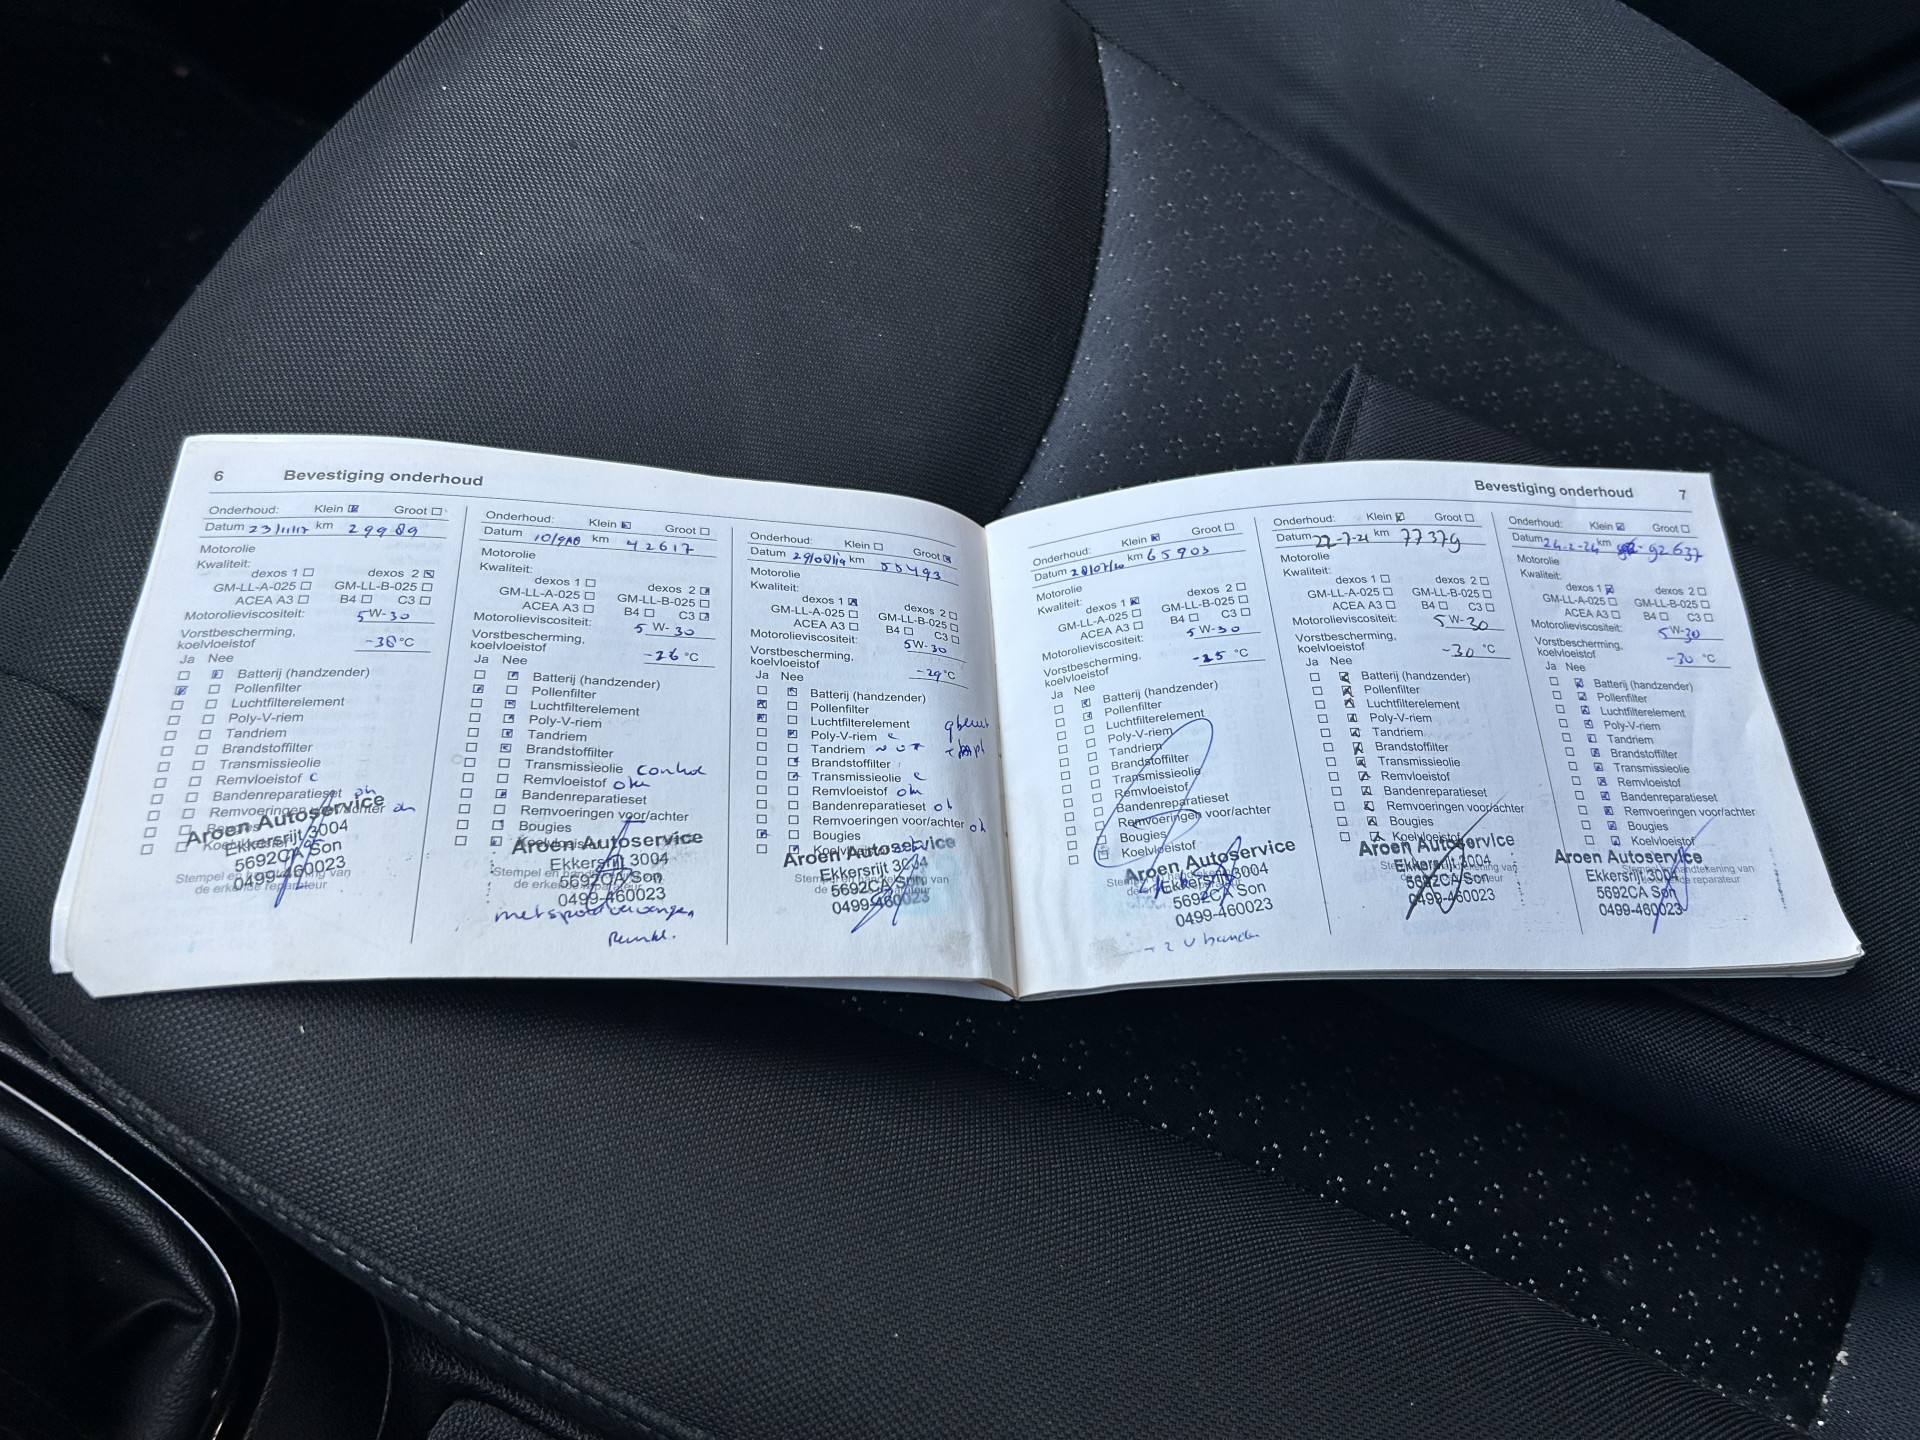 6 Bevestiging onderhoud
Onderhoud: Klein Groot
Datum 23/11/17 km 29989
Motorolie
Kwaliteit:
dexos 1 dexos 2
GM-LL-A-025 GM-LL-B-025
ACEA A3 B4 C3
Motorolieviscositeit: 5W-30
Vorstbescherming,
koelvloeistof -38 °C
Ja Nee
Batterij (handzender)
Pollenfilter
Luchtfilterelement
Poly-V-riem
Tandriem
Brandstoffilter
Transmissieolie
Remvloeistof c
Bandenreparatieset oh
Remvoeringen voor/achter oh
Aroen Autoservice
Ekkersrijt 3004
5692CA Son
0499-460023
Stempel en handtekening van
de erkende reparateur
Onderhoud: Klein Groot
Datum 10/9/18 km 42617
Motorolie
Kwaliteit:
dexos 1 dexos 2
GM-LL-A-025 GM-LL-B-025
ACEA A3 B4 C3
Motorolieviscositeit: 5W-30
Vorstbescherming,
koelvloeistof -26 °C
Ja Nee
Batterij (handzender)
Pollenfilter
Luchtfilterelement
Poly-V-riem
Tandriem
Brandstoffilter
Transmissieolie
Remvloeistof oh
Bandenreparatieset
Remvoeringen voor/achter
Bougies
Koelvloeistof
Aroen Autoservice
Ekkersrijt 3004
5692CA Son
0499-460023
Stempel en handtekening van
de erkende reparateur
Onderhoud: Klein Groot
Datum 29/08/19 km 55493
Motorolie
Kwaliteit:
dexos 1 dexos 2
GM-LL-A-025 GM-LL-B-025
ACEA A3 B4 C3
Motorolieviscositeit: 5W-30
Vorstbescherming,
koelvloeistof -29 °C
Ja Nee
Batterij (handzender)
Pollenfilter
Luchtfilterelement
Poly-V-riem c
Tandriem
Brandstoffilter
Transmissieolie c
Remvloeistof oh
Bandenreparatieset oh
Remvoeringen voor/achter oh
Bougies
Koelvloeistof
Aroen Autoservice
Ekkersrijt 3004
5692CA Son
0499-460023
Bevestiging onderhoud 7
Onderhoud: Klein Groot
Datum 28/07/20 km 65903
Motorolie
Kwaliteit:
dexos 1 dexos 2
GM-LL-A-025 GM-LL-B-025
ACEA A3 B4 C3
Motorolieviscositeit: 5W-30
Vorstbescherming,
koelvloeistof -25 °C
Ja Nee
Batterij (handzender)
Pollenfilter
Luchtfilterelement
Poly-V-riem
Tandriem
Brandstoffilter
Transmissieolie
Remvloeistof
Bandenreparatieset
Remvoeringen voor/achter
Bougies
Koelvloeistof
Aroen Autoservice
Ekkersrijt 3004
5692CA Son
0499-460023
2 V banden
Onderhoud: Klein Groot
Datum 22-7-21 km 77379
Motorolie
Kwaliteit:
dexos 1 dexos 2
GM-LL-A-025 GM-LL-B-025
ACEA A3 B4 C3
Motorolieviscositeit: 5W-30
Vorstbescherming,
koelvloeistof -30 °C
Ja Nee
Batterij (handzender)
Pollenfilter
Luchtfilterelement
Poly-V-riem
Tandriem
Brandstoffilter
Transmissieolie
Remvloeistof
Bandenreparatieset
Remvoeringen voor/achter
Bougies
Koelvloeistof
Aroen Autoservice
Ekkersrijt 3004
5692CA Son
0499-460023
Onderhoud: Klein Groot
Datum 24-2-24 km 92637
Motorolie
Kwaliteit:
dexos 1 dexos 2
GM-LL-A-025 GM-LL-B-025
ACEA A3 B4 C3
Motorolieviscositeit: 5W-30
Vorstbescherming,
koelvloeistof -30 °C
Ja Nee
Batterij (handzender)
Pollenfilter
Luchtfilterelement
Poly-V-riem
Tandriem
Brandstoffilter
Transmissieolie
Remvloeistof
Bandenreparatieset
Remvoeringen voor/achter
Bougies
Koelvloeistof
Aroen Autoservice
Ekkersrijt 3004
5692CA Son
0499-460023